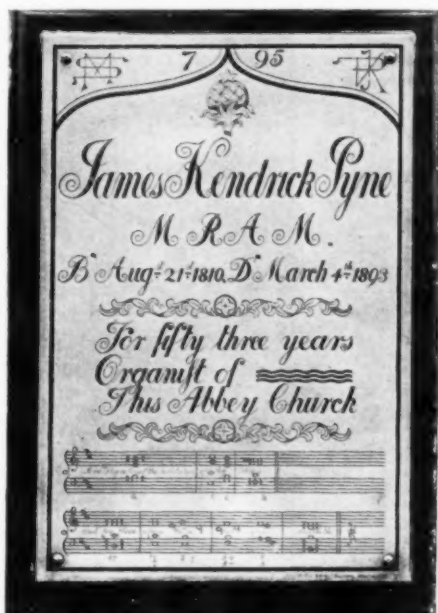 7 95
James Kendrick Pyne
M R A M.
Bn Augst 21st 1810, Dd March 4th 1893
For fifty three years
Organiſt of
This Abbey Church